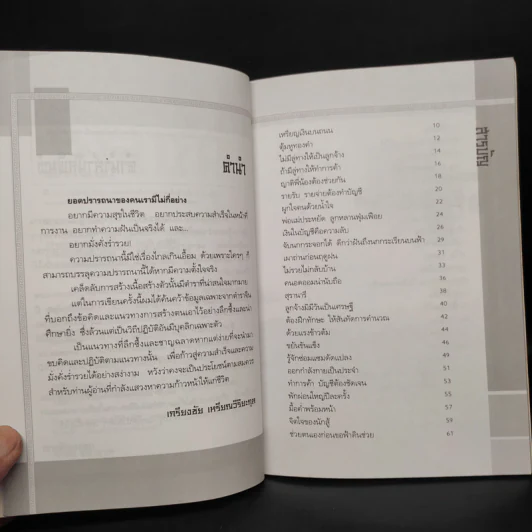 คำนำ
ยอดปรารถนาของคนเรามีไม่กี่อย่าง
อยากมีความสุขในชีวิต อยากประสบความสำเร็จในหน้าที่
การงาน อยากทำความฝันเป็นจริงได้ และ...
อยากมั่งคั่งร่ำรวย!
ความปรารถนานี้มิใช่เรื่องไกลเกินเอื้อม ด้วยเพราะใครๆ ก็
สามารถบรรลุความปรารถนานี้ได้หากมีความตั้งใจจริง
เคล็ดลับการสร้างเนื้อสร้างตัวนั้นมีตำราที่น่าสนใจมากมาย
แต่ในการเขียนครั้งนี้ผมได้ค้นคว้าข้อมูลเฉพาะจากตำราจีน
ที่บอกถึงข้อคิดและแนวทางการสร้างตนเอาไว้อย่างลึกซึ้งและน่า
ศึกษายิ่ง ซึ่งล้วนแต่เป็นวิถีปฏิบัติอันมีบุคลิกเฉพาะตัว
เป็นแนวทางที่ลึกซึ้งและชาญฉลาดหากแต่ง่ายที่จะนำมา
ขบคิดและปฏิบัติตามแนวทางนั้น เพื่อก้าวสู่ความสำเร็จและความ
มั่งคั่งร่ำรวยได้อย่างสง่างาม หวังว่าคงจะเป็นประโยชน์ตามสมควร
สำหรับท่านผู้อ่านที่กำลังแสวงหาความก้าวหน้าให้แก่ชีวิต
สารบัญ
เหรียญเงินบนถนน 10
ตุ้มหูทองคำ 12
ไม่มีลู่ทางให้เป็นลูกจ้าง 14
ถ้ามีลู่ทางให้ทำการค้า 16
ญาติพี่น้องต้องช่วยกัน 18
รายรับ รายจ่ายต้องทำบัญชี 20
ผูกใจคนด้วยน้ำใจ 22
พ่อแม่ประหยัด ลูกหลานฟุ่มเฟือย 24
เงินในบัญชีคือความลับ 26
จับนกกระจอกได้ ดีกว่าฝันถึงนกกระเรียนบนฟ้า 29
เผาถ่านก่อนฤดูฝน 31
ไม่รวยไม่กลับบ้าน 33
คนอดออมน่านับถือ 36
สุรานารี 38
ลูกจ้างมีมีวันเป็นเศรษฐี 40
ต้องฝึกทักษะ ให้สันทัดการคำนวณ 42
ด้วยแรงข้าวต้ม 44
ขยันขันแข็ง 46
รู้จักซ่อมแซมดัดแปลง 49
ออกกำลังกายเป็นประจำ 51
ทำการค้า บัญชีต้องชัดเจน 53
พักผ่อนใหญ่ปีละครั้ง 55
มื้อค่ำพร้อมหน้า 57
จิตใจของนักสู้ 59
ช่วยตนเองก่อนขอฟ้าดินช่วย 61